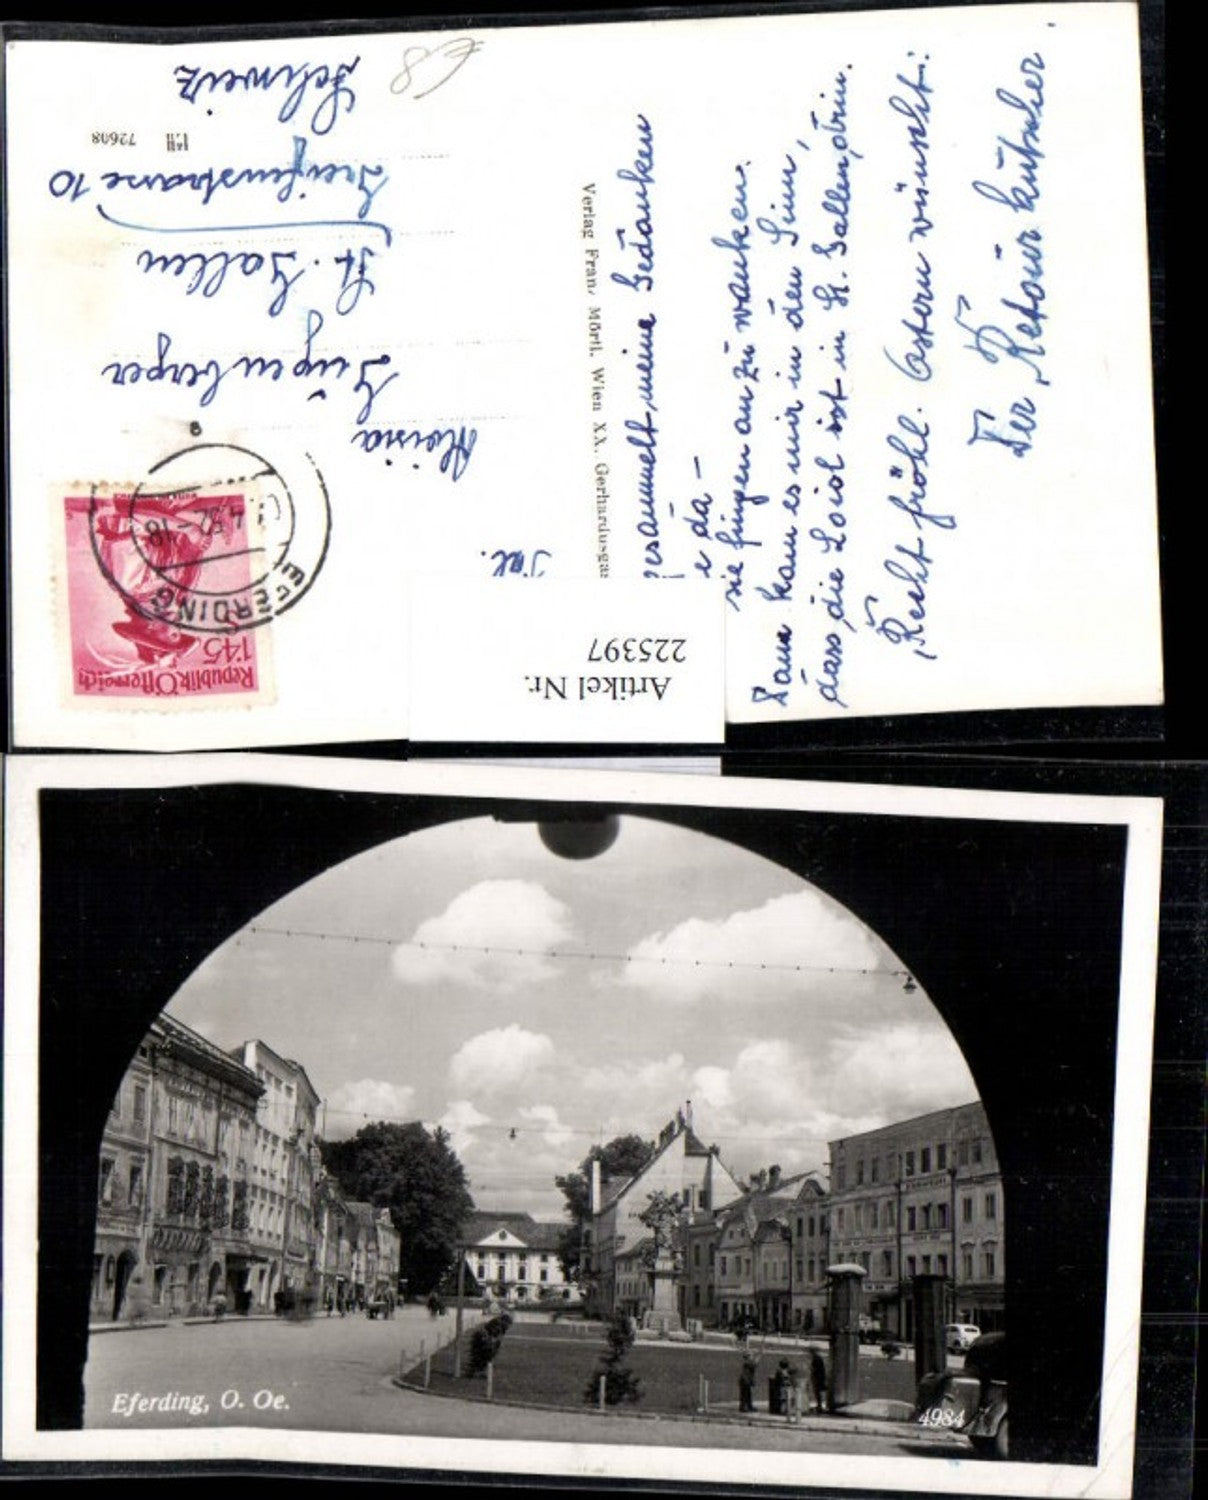 Frl.
Luisa
Grünberger
St. Gallen
Greifenstrasse 10
Schweiz
€8
72608
Republik Österreich
1'45
EFERDING
4.52-18
8
Artikel Nr.
225397
Verlag Franz Mörtl, Wien XX., Gerhardusgas
gesammelt, meine Gedanken
e da –
sie fingen an zu wanken.
Dann kam es mir in den Sinn,
dass die Loisl ist in St. Gallen drin.
„Recht fröhl. Ostern wünscht:
Der „Retour Kutscher
Eferding, O. Oe.
4984